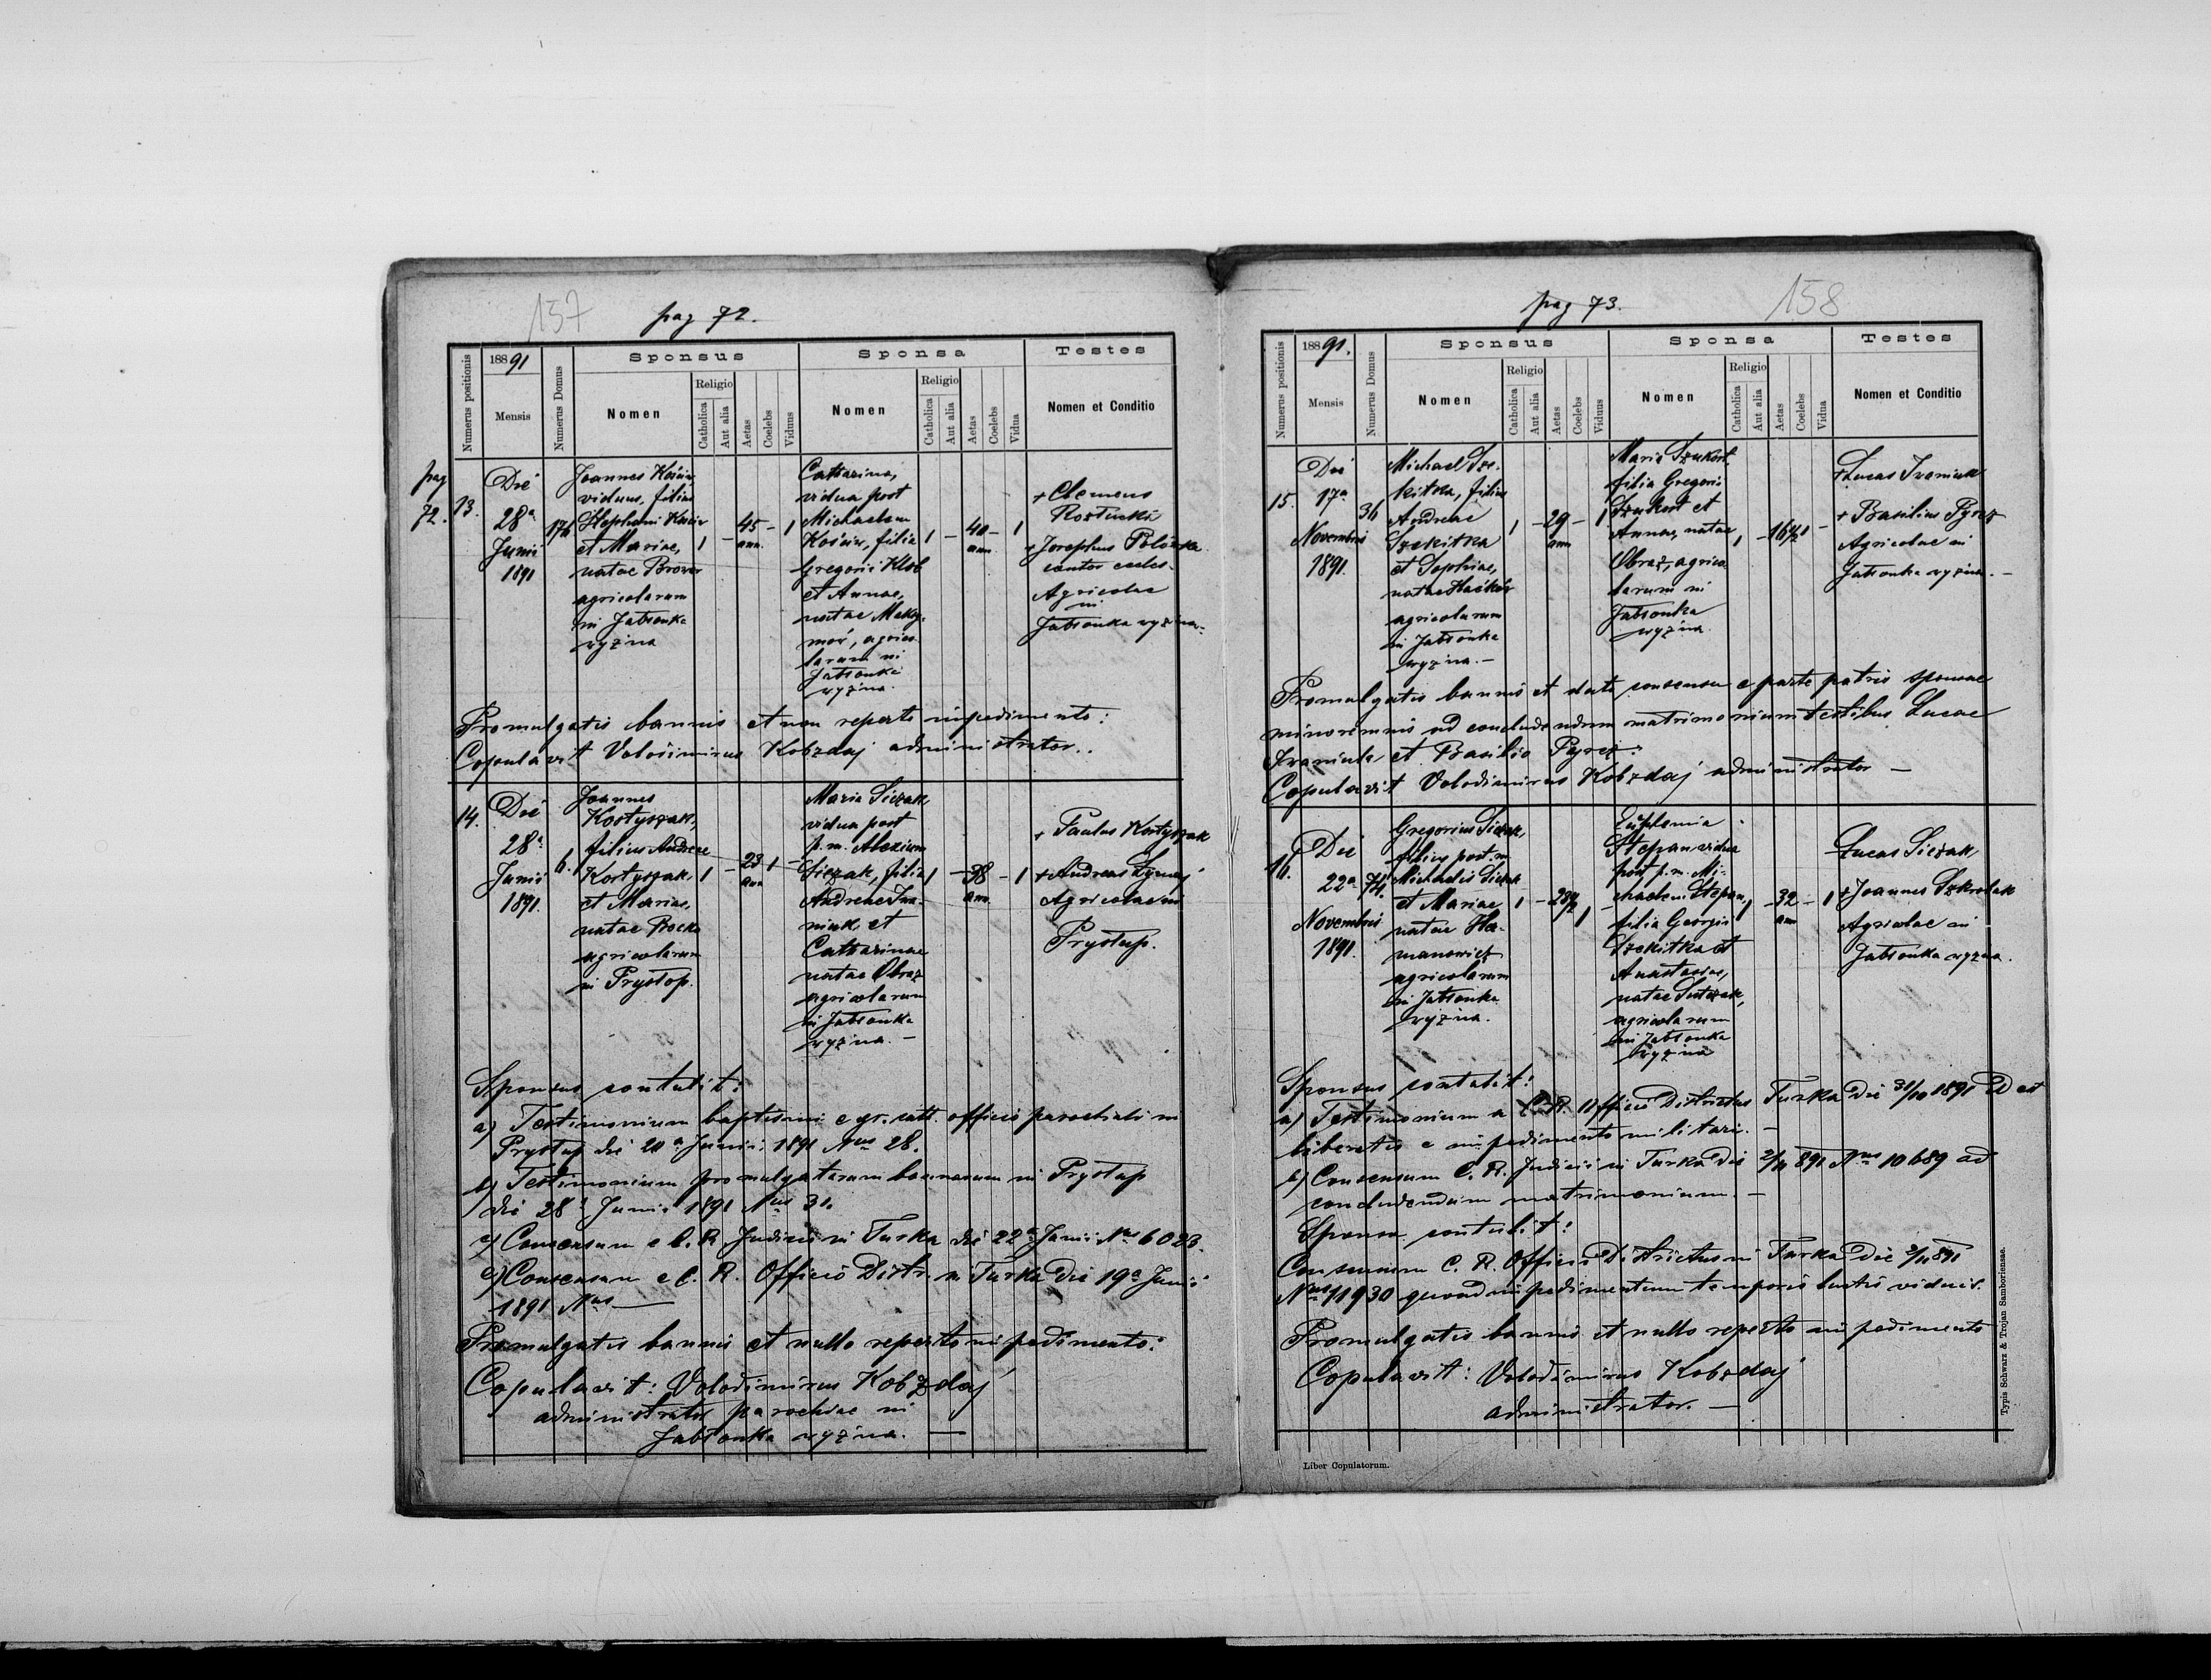 157
pag 72.
Numerus positionis
188 91
Mensis
Numerus Domus
Sponsus
Nomen
Religio
Catholica
Aut alia
Aetas
Coelebs
Viduus
Sponsa
Nomen
Religio
Catholica
Aut alia
Aetas
Coelebs
Vidua
Testes
Nomen et Conditio
pag
72.
13.
Die
28a
Junii
1891
176
Joannes Kościw
viduus, filius
Stephani Kościw
et Mariae,
natae Brower
agricolarum
in Jabłonka
wyżna
1
-
45
ann.
-
1
Catharina,
vidua post
Michaelem
Kościw, filia
Gregorii Kłob
et Annae,
natae
agrico-
larum in
Jabłonka
wyżna.
1
-
40
ann.
-
1
+ Clemens
Roztucki
+ Josephus
cantor eccles.
Agricolae
in
Jabłonka wyżna.
Promulgatis bannis et non reperto impedimento:
Copulavit Volodimirus Kobzdaj administrator.
14.
Die
28a
Junii
1891.
6.
Joannes
Kostyszak,
filius Andreae
Kostyszak
et Mariae,
natae
agricolarum
in Prystop.
1
-
23
ann
1
-
Maria Siczak
vidua post
p. m. Alexium
Siczak, filia
Andreae Iwa-
niuk et
Catharinae
natae Obraz
agricolarum
in Jabłonka
wyżna. -
1
-
38
ann.
-
1
+ Paulus Kostyszak
+ Andreas
Agricolae in
Prystup.
Sponsus contulit:
a) Testimonium baptismi e gr. cath. officio parochiali in
Prystup die 20a Junii 1891 Nus 28.
b) Testimonium promulgatarum bannorum in Prystup
die 28a Junii 1891 Nus 31.
c) Consensum e C. R. Judicii in Turka die 22a Junii Nus 6023.
d) Consensum e C. R. Officio Distr. in Turka die 19a Junii
1891 Nus —
Promulgatis bannis et nullo reperto impedimento:
Copulavit: Volodimirus Kobzdaj
administrator parochiae in
Jabłonka wyżna. —
pag 73.
158
Numerus positionis
188 91.
Mensis
Numerus Domus
Sponsus
Nomen
Religio
Catholica
Aut alia
Aetas
Coelebs
Viduus
Sponsa
Nomen
Religio
Catholica
Aut alia
Aetas
Coelebs
Vidua
Testes
Nomen et Conditio
15.
Die
17a
Novembris
1891.
36
Michael Sze-
kitka, filius
Andreae
Szekitka
et Sophiae,
natae
agricolarum
in Jabłonka
wyżna. -
1
-
29
ann
-
1
Maria Szukost,
filia Gregorii
Szukost et
Annae, natae
Obraz, agrico
larum in
Jabłonka
wyżna.
1
-
16 1/2
1
-
+ Lucas Iwaniuk
+ Basilius Pyrcz
Agricolae in
Jabłonka wyżna. -
Promulgatis bannis et dato consensu e parte patris sponsae
minorennis ad concludendum matrimonium testibus Lucae
Iwaniuk et Basilio Pyrcz:
Copulavit Volodimirus Kobzdaj administrator —
16.
Die
22a
Novembris
1891.
74
Gregorius Siczak,
filius post. m
Michaelis Siczak
et Mariae
natae Ha-
manowicz
agricolarum
in Jabłonka
wyżna.
1
-
28 1/2
1
Euphemia
Stepan vidua
post p. m. Mi-
chaelem Stepan,
filia Georgii
Szekitka et
Anastasiae,
natae
agricolarum
in Jabłonka
wyżna
1
-
32
ann
-
1
Lucas Siczak,
+ Joannes
Agricolae in
Jabłonka wyżna.
Sponsus contulit:
a) Testimonium a C. R. Officio Districtus Turka die 31/10 1891
liberatis e impedimento militari. -
b) Consensum C. R. Judicii in Turka die 2/11 891 Nus 10689 ad
concludendum matrimonium. -
Sponsa contulit:
Consensum C. R. Officii Districtus in Turka die 2/11 891
Nus 11930 quoad impedimentum temporis luctus viduis.
Promulgatis bannis et nullo reperto impedimento
Copulavit: Volodimirus Kobzdaj
administrator. —
Liber Copulatorum.
Typis Schwarz & Trojan Samborienae.